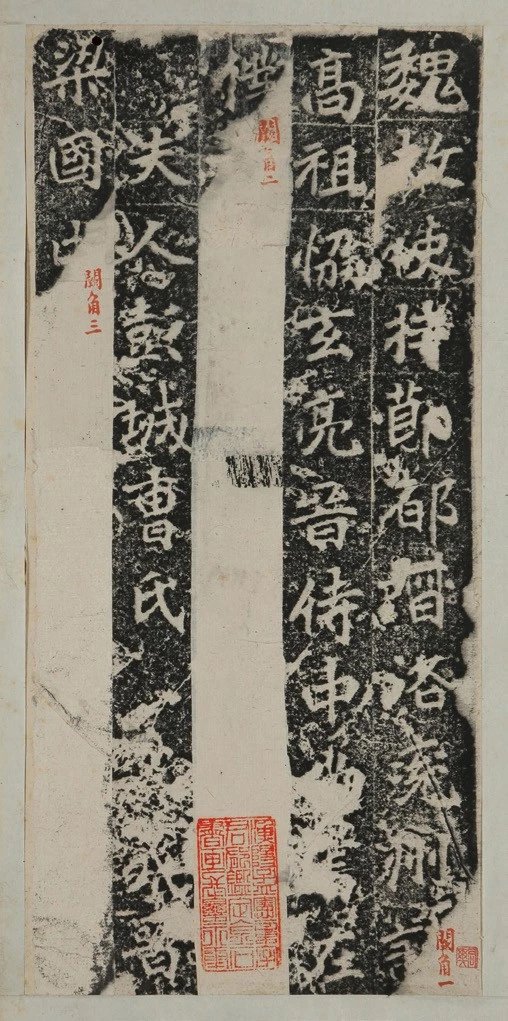 魏故使持節都督洛兗州
闕角一
高祖協玄亮晉侍中尚書左
僕
闕角二
夫人彭城曹氏 晉
梁國中
闕角三